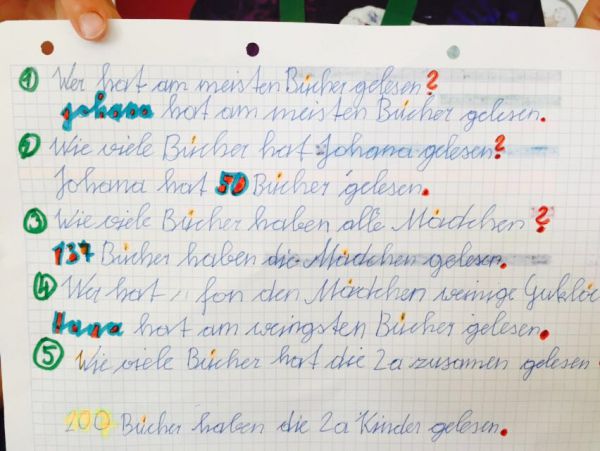 1 Wer hat am meisten Bücher gelesen?
Johana hat am meisten Bücher gelesen.
2 Wie viele Bücher hat Johana gelesen?
Johana hat 50 Bücher gelesen.
3 Wie viele Bücher haben alle Mädchen ?
137 Bücher haben die Mädchen gelesen.
4 Wer hat fon den Mädchen weinige
hat am weingsten Bücher gelesen.
5 Wie viele Bücher hat die 2a zusamen gelesen
200 Bücher haben die 2a Kinder gelesen.